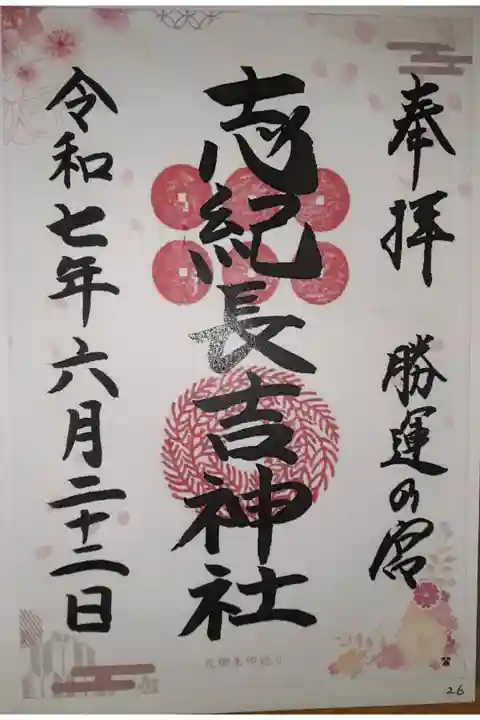 奉拝 勝運の宮
志紀長吉神社
令和七年六月二十二日
26